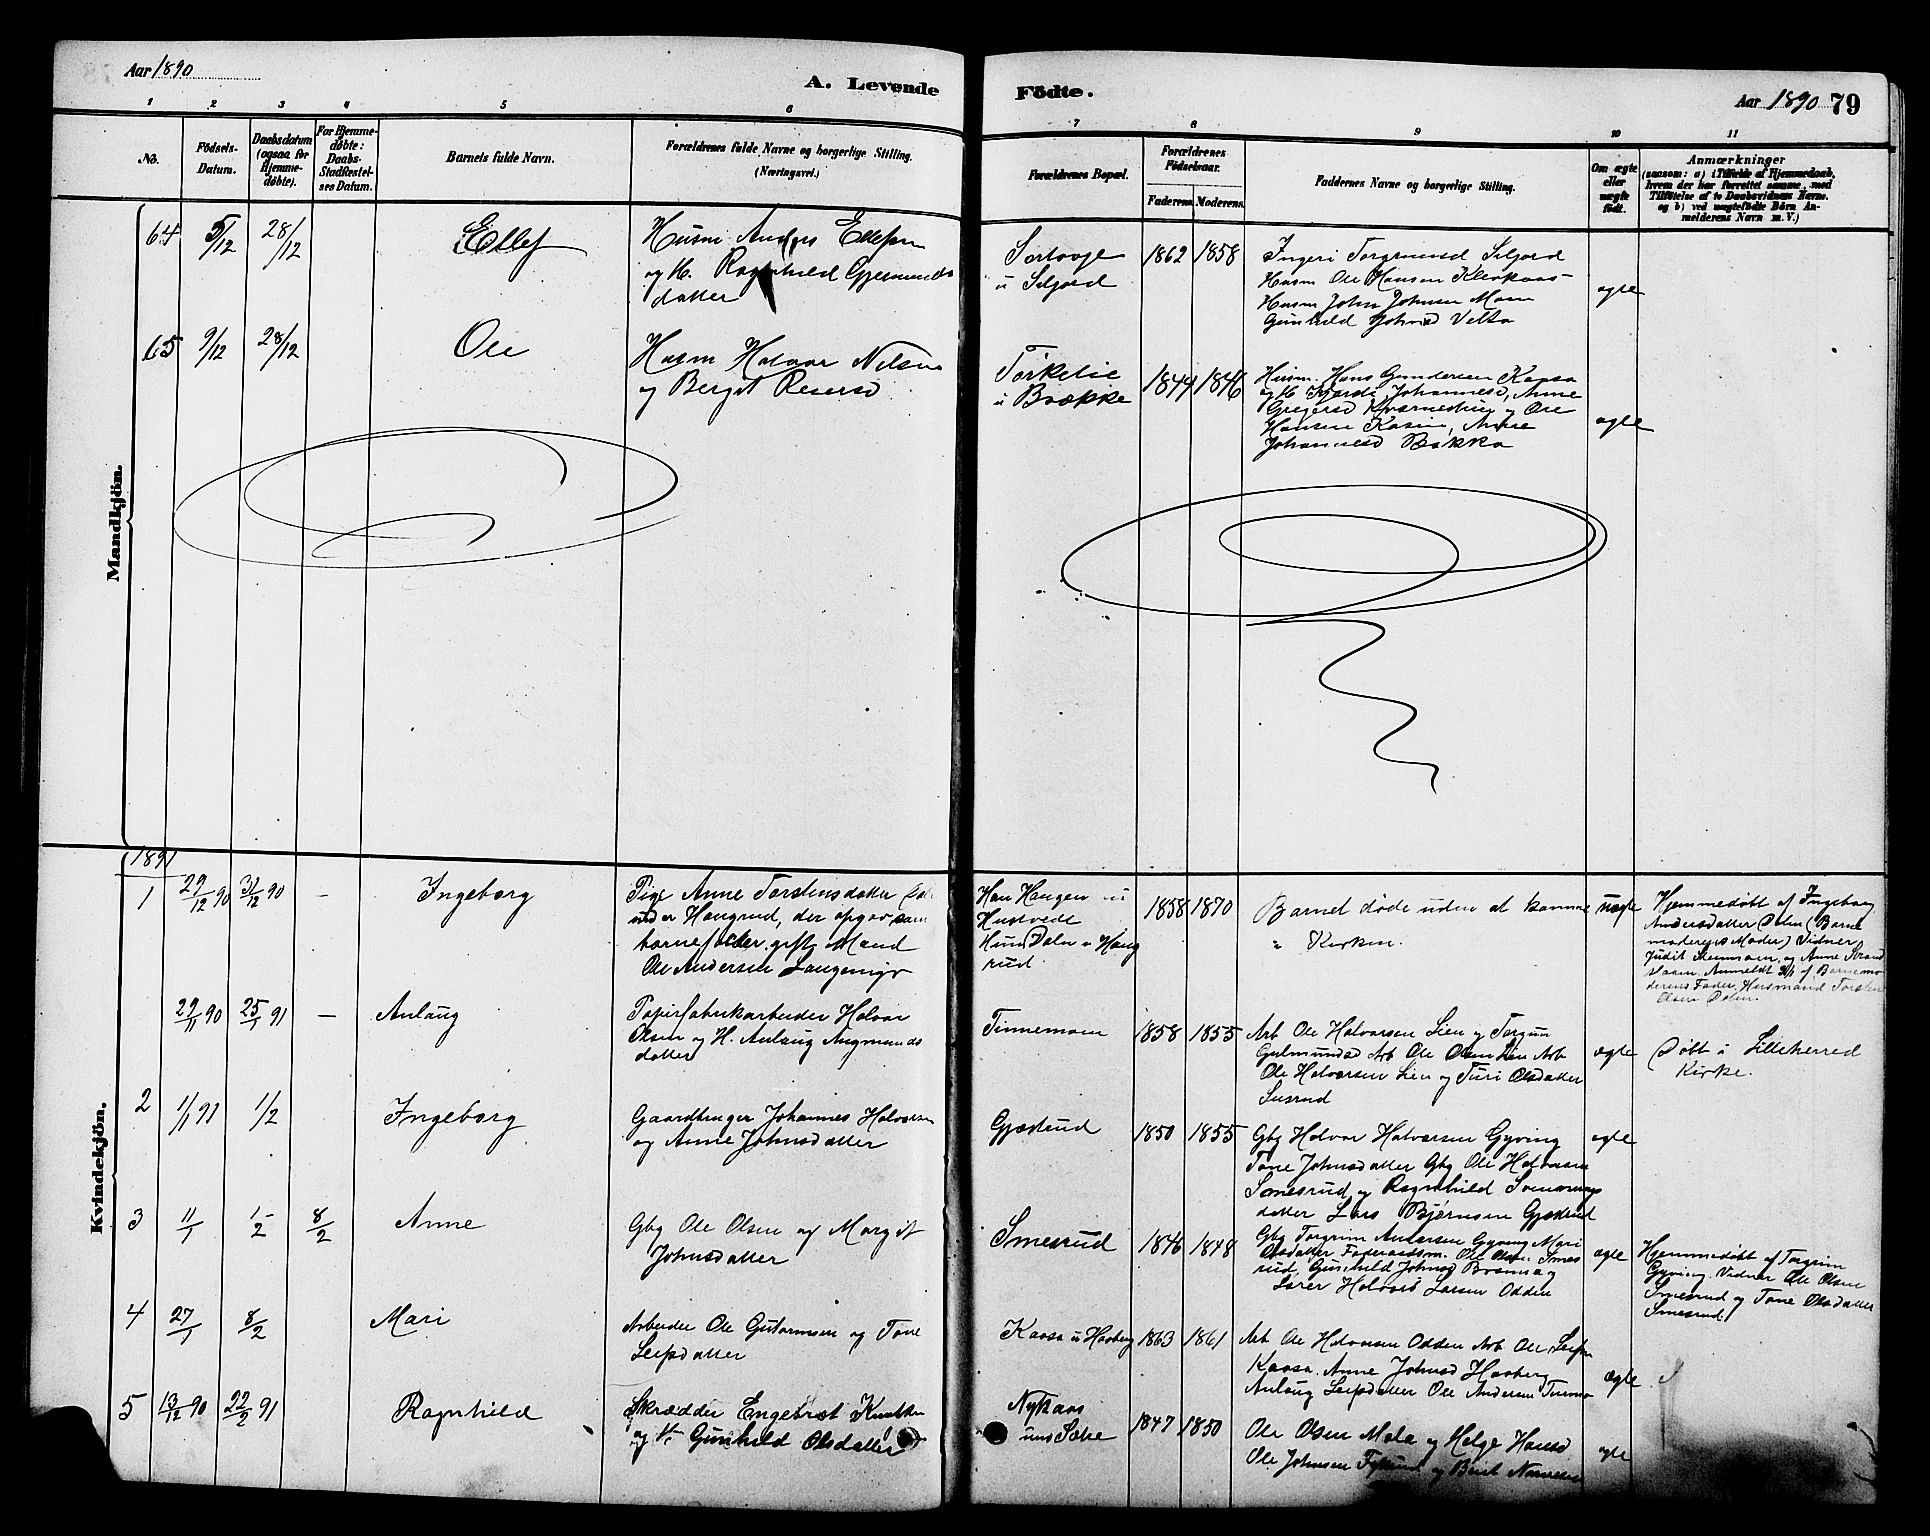 Aar 1890
A. Levende
Födte.
Aar 1890 79
1 2 3 4 5 6 7 8 9 10 11
No.
Födsels-
Datum.
Daabsdatum
(ogsaa for
Hjemme-
døbte).
For Hjemme-
døbte:
Daabs-
Stadfæstel-
ses Datum.
Barnets fulde Navn.
Forældrenes fulde Navne og borgerlige Stilling.
(Næringsvei.)
Forældrenes Bopæl.
Forældrenes
Födselsaar.
Faderens. Moderens.
Faddernes Navne og borgerlige Stilling.
Om ægte
eller
uægte
født.
Anmærkninger
(saasom: a) i Tilfælde af Hjemmedaab,
hvem der har forrettet samme, med
Tilföielse af to Daabsvidners Navne.
og b) ved uægtefødte Börn An-
melderens Navn m. V.)
Mandkjön.
64 5/12 28/12
Ellef
Husm Anders Ellefsen
og H. Ragnhild Gjermunds
datter
Sortvoge
u Seljord
1862 1858
Ingeri Torgrimsd Seljord
Husm Ole Hansen Kleivkaas
Husm John Johnsen Moen
Gunhild Johnsd Velta
ægte
65 9/12 28/12
Ole
Husm Halvor Nilsen
og Bergit Reiersd
Torkelie
u Brække
1844 1846
Husm. Hans Gundersen Kaasa
og H. Johannesd, Anne
Gregersd og Ole
Hansen Kasin, Anne
Johannesd Bakka
ægte
Kvindekjön.
1891
1 29/12 90 31/12 90 -
Ingeborg
Pige Anne Torstensdatter
under Haugrud, der opgav som
barnefader gift Mand
Ole Andersen
Haugen u
Hustvedt
Hun Dalen u Haug
rud
1858 1870
Barnet døde uden at komme
i Kirken.
uægte
Hjemmedøbt af Ingeborg
Andersdatter Dalen (Barne
moderens Moder) Vidner
Judit og Anne Strand
Anmeldt af Barnemo
derens Fader, Husmand Torsten
Olsen Dalen
29/11 90 25/1 91 -
Anlaug
Papirfabrikarbeider Halvor
Olsen og H. Anlaug Augmunds
datter
Tinnemoen
1858 1855
Arb Ole Halvorsen Lien og Torgun
Arb Ole Olsen Lien Arb
Ole Halvorsen Lien og Turi Olsdatter
Susrud
ægte
Døbt i Lilleherred
Kirke.
2 1/1 91 1/2 -
Ingeborg
Gaardbruger Johannes Halvorsen
og Anne Johnsdatter
Gjæstrud
1850 1855
Gbg Halvor Halvorsen Gyving
Tone Johnsdatter Gbg Ole Halvorsen
Smesrud og Ragnhild
datter Lars Bjørnsen Gjæstrud
ægte
3 11/1 1/2 8/2
Anne
Gbg Ole Olsen og Margit
Johnsdatter
Smesrud
1846 1848
Gbg Torgrim Andersen Gyving Mari
Olsdatter Ole Olsen Smes
rud, Gunhild Johnsd
Halvord Larsen Odden
ægte
Hjemmedøbt af Torgrim
Gyving. Vidner Ole Olsen
Smesrud og Tone Olsdatter
Smesrud
4 27/1 8/2
Mari
Arbeider Ole Guttormsen og Tone
Leifsdatter
Kaasa u Haaberg
1863 1861
Arb Ole Halvorsen Odden Arb Ole Leifsen
Kaasa. Anne Johnsd Haaberg
Anlaug Leifsdatter Ole Andersen
ægte
5 13/12 90 22/2 91
Ragnhild
Skrædder Engebret Knutsen
og H. Gunhild Olsdatter
Nykaas
1847 1850
Ole Olsen Mæla og Helge Hansd
Ole Johnsen og Berit
ægte